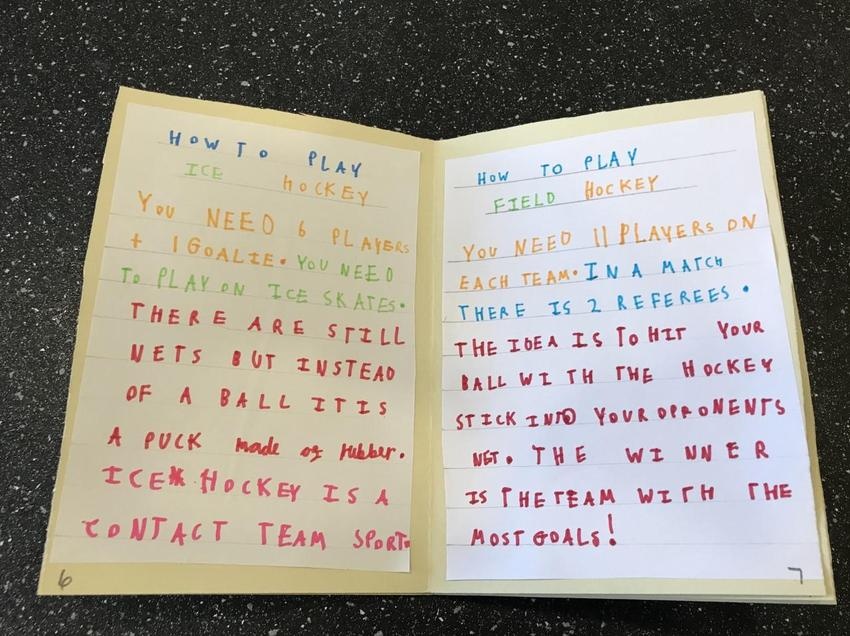 HOW TO PLAY
ICE HOCKEY
YOU NEED 6 PLAYERS
+ 1 GOALIE. YOU NEED
TO PLAY ON ICE SKATES.
THERE ARE STILL
NETS BUT INSTEAD
OF A BALL IT IS
A PUCK made of rubber.
ICE HOCKEY IS A
CONTACT TEAM SPORT.
6
HOW TO PLAY
FIELD HOCKEY
YOU NEED 11 PLAYERS ON
EACH TEAM. IN A MATCH
THERE IS 2 REFEREES.
THE IDEA IS TO HIT YOUR
BALL WITH THE HOCKEY
STICK INTO YOUR OPPONENTS
NET. THE WINNER
IS THE TEAM WITH THE
MOST GOALS!
7